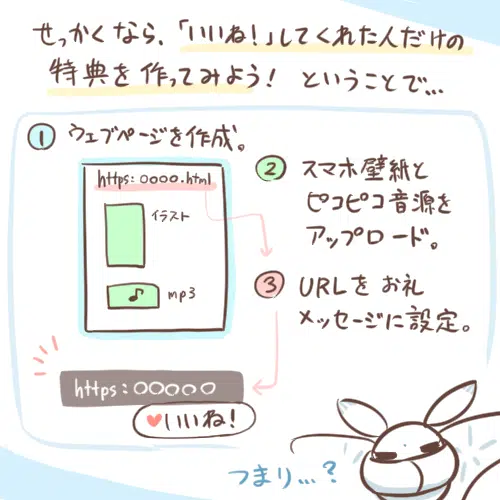 せっかくなら、「いいね!」してくれた人だけの
特典を作ってみよう! ということで…
① ウェブページを作成。
https:○○○○.html
イラスト
♪ mp3
② スマホ壁紙と
ピコピコ音源を
アップロード。
③ URLをお礼
メッセージに設定。
https:○○○○○
♥いいね!
つまり…?